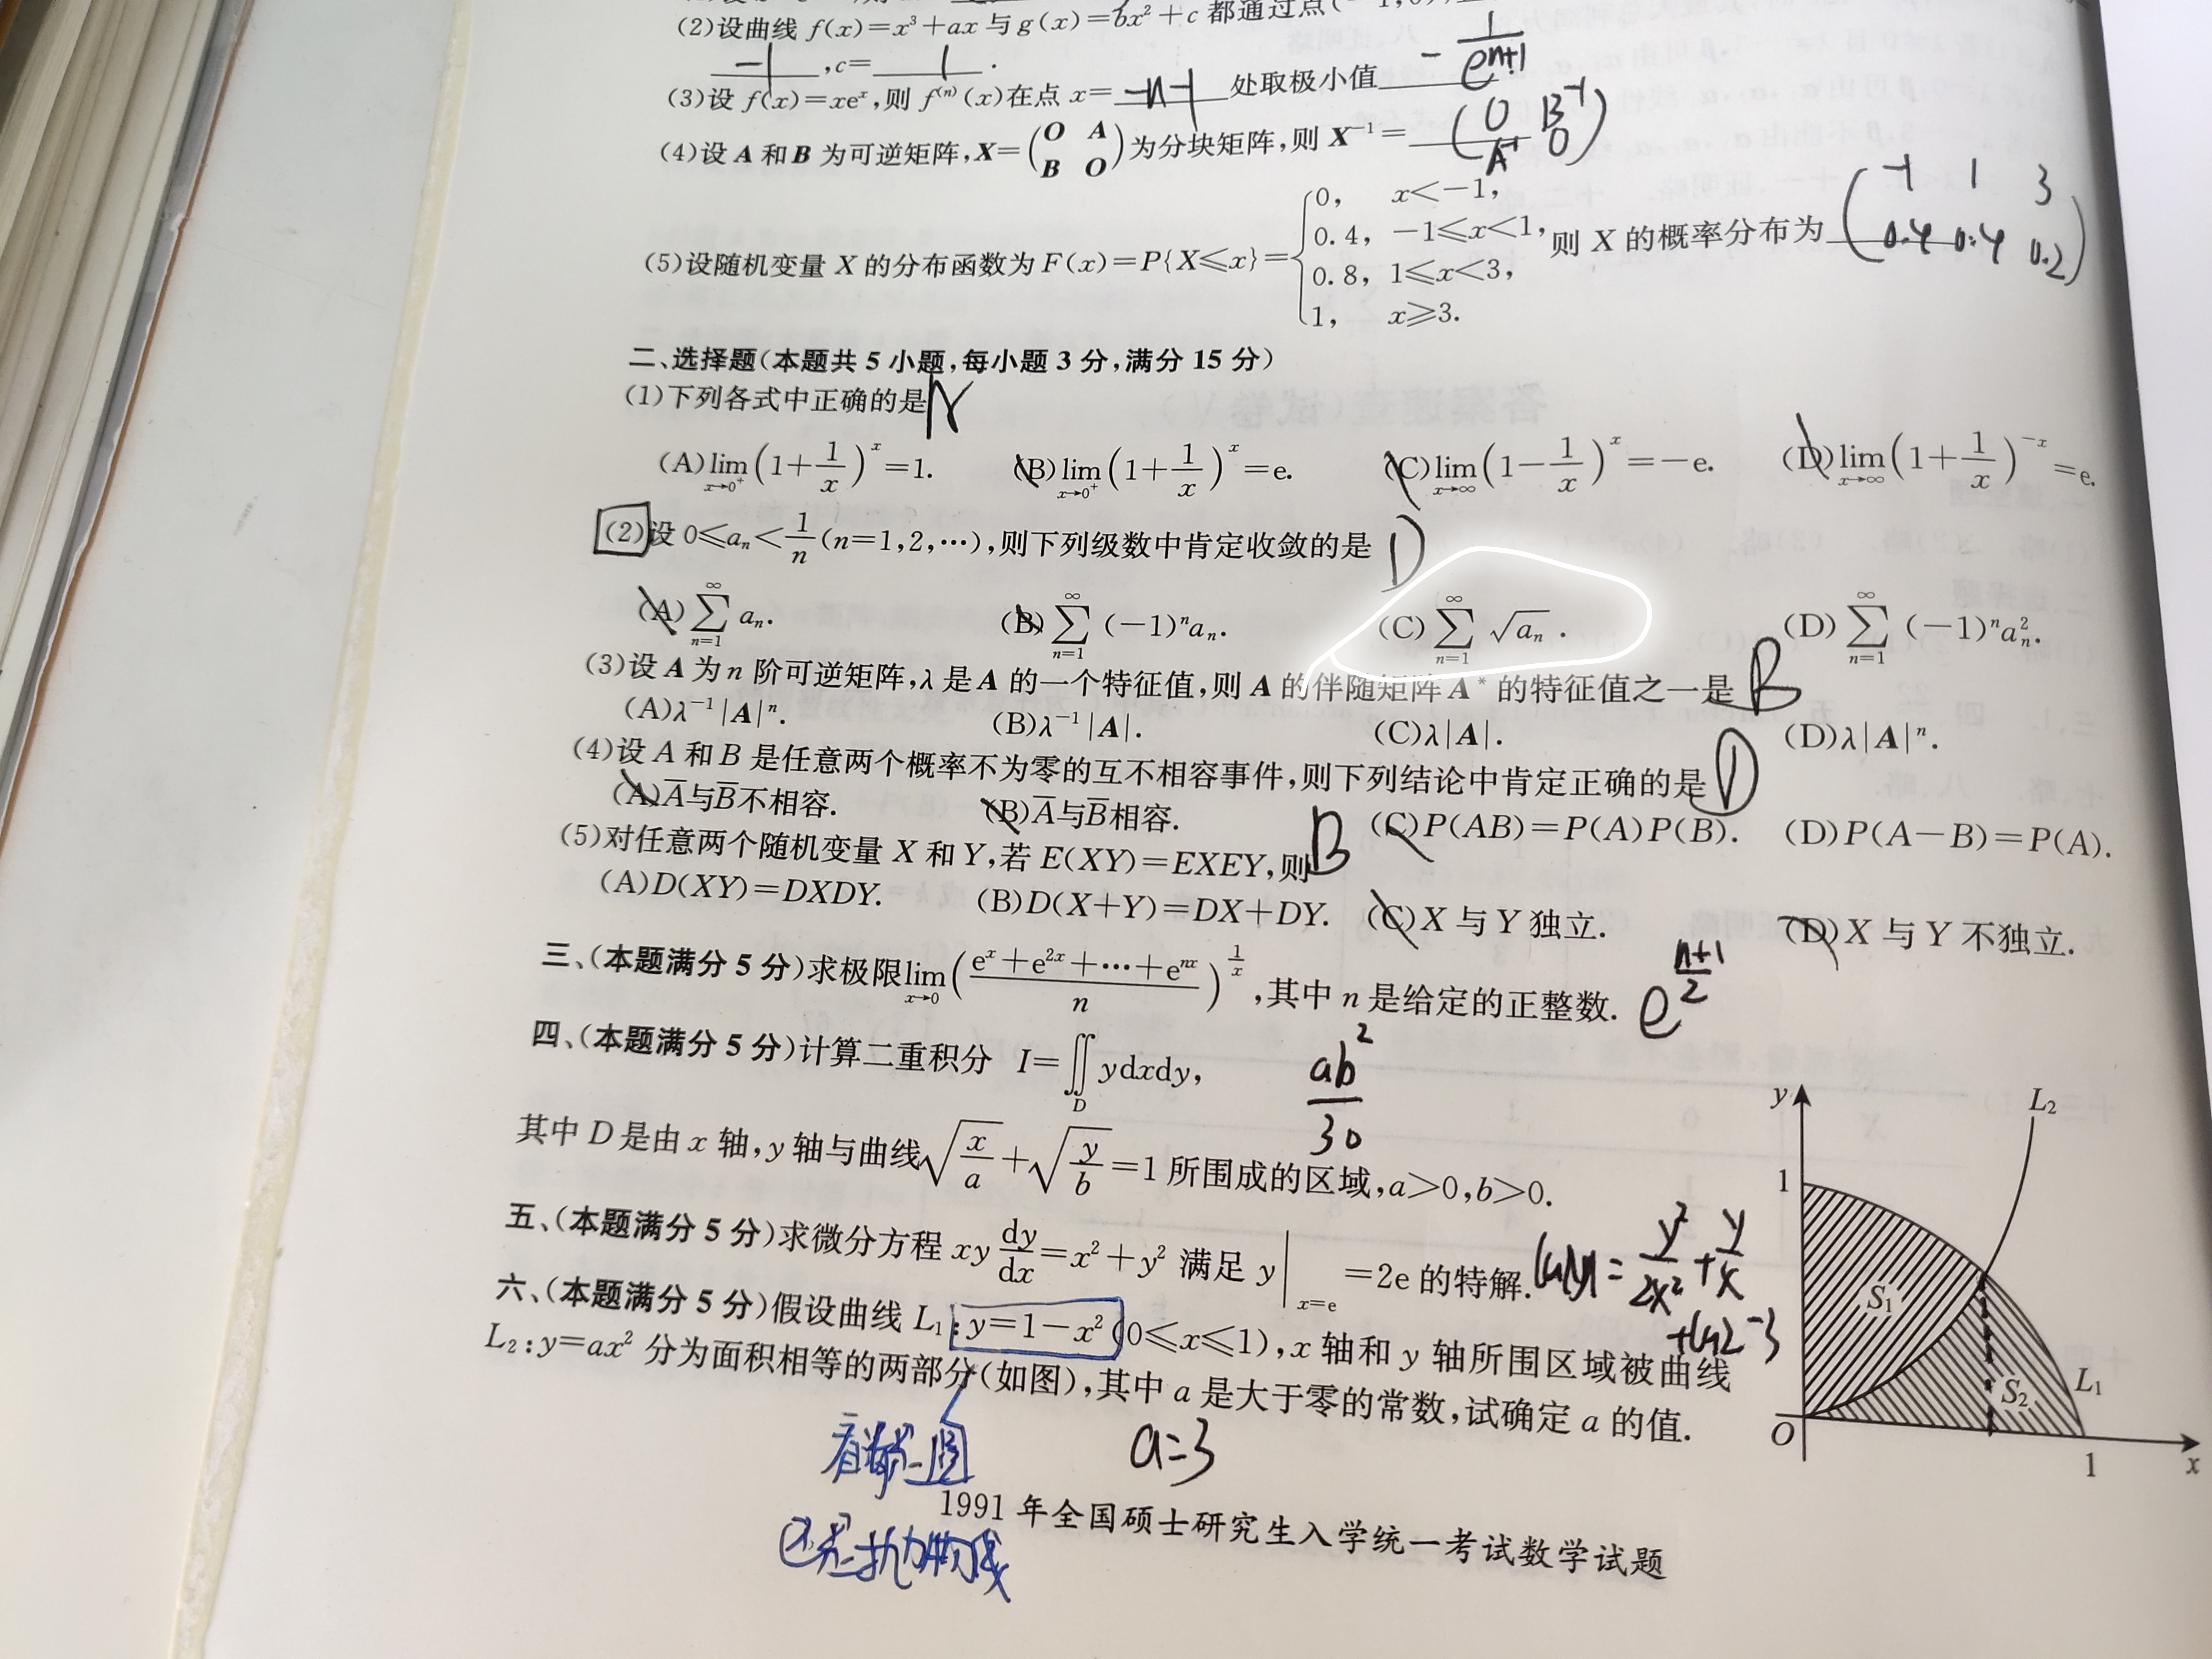 (2)设曲线 f(x)=x³+ax 与 g(x)=bx²+c 都通过点(-1,0),
-1 ,c= 1 .
(3)设 f(x)=xeˣ,则 f⁽ⁿ⁾(x)在点 x= -n-1 处取极小值 -1/eⁿ⁺¹
(4)设 A 和 B 为可逆矩阵,X=(O A; B O)为分块矩阵,则 X⁻¹= (0 B⁻¹; A⁻¹ 0)
(5)设随机变量 X 的分布函数为 F(x)=P{X≤x}={0, x<-1, 0.4, -1≤x<1, 0.8, 1≤x<3, 1, x≥3. 则 X 的概率分布为 (-1 1 3; 0.4 0.4 0.2)
二、选择题(本题共 5 小题,每小题 3 分,满分 15 分)
(1)下列各式中正确的是
(A) lim_{x→0⁺}(1+1/x)ˣ=1. (B) lim_{x→0⁺}(1+1/x)ˣ=e. (C) lim_{x→∞}(1-1/x)ˣ=-e. (D) lim_{x→∞}(1+1/x)⁻ˣ=e.
(2)设 0≤aₙ<1/n(n=1,2,…),则下列级数中肯定收敛的是 D
(A) ∑_{n=1}^{∞} aₙ. (B) ∑_{n=1}^{∞} (-1)ⁿaₙ. (C) ∑_{n=1}^{∞} √aₙ. (D) ∑_{n=1}^{∞} (-1)ⁿaₙ².
(3)设 A 为 n 阶可逆矩阵,λ 是 A 的一个特征值,则 A 的伴随矩阵 A* 的特征值之一是 B
(A)λ⁻¹|A|ⁿ. (B)λ⁻¹|A|. (C)λ|A|. (D)λ|A|ⁿ.
(4)设 A 和 B 是任意两个概率不为零的互不相容事件,则下列结论中肯定正确的是 D
(A)A̅与B̅不相容. (B)A̅与B̅相容. (C)P(AB)=P(A)P(B). (D)P(A-B)=P(A).
(5)对任意两个随机变量 X 和 Y,若 E(XY)=EXEY,则 B
(A)D(XY)=DXDY. (B)D(X+Y)=DX+DY. (C)X 与 Y 独立. (D)X 与 Y 不独立.
三、(本题满分 5 分)求极限lim_{x→0}((eˣ+e²ˣ+…+eⁿˣ)/n)^{1/x},其中 n 是给定的正整数. e^{(n+1)/2}
四、(本题满分 5 分)计算二重积分 I=∬_D ydxdy, ab²/30
其中 D 是由 x 轴,y 轴与曲线√(x/a)+√(y/b)=1 所围成的区域,a>0,b>0.
五、(本题满分 5 分)求微分方程 xy dy/dx=x²+y² 满足 y|_{x=e}=2e 的特解. ln|y|=y²/2x²+y/x
+ln2-3
六、(本题满分 5 分)假设曲线 L₁:y=1-x²(0≤x≤1),x 轴和 y 轴所围区域被曲线
L₂:y=ax² 分为面积相等的两部分(如图),其中 a 是大于零的常数,试确定 a 的值.
a=3
y
L₂
1
S₁
S₂
L₁
O
1
x
1991 年全国硕士研究生入学统一考试数学试题